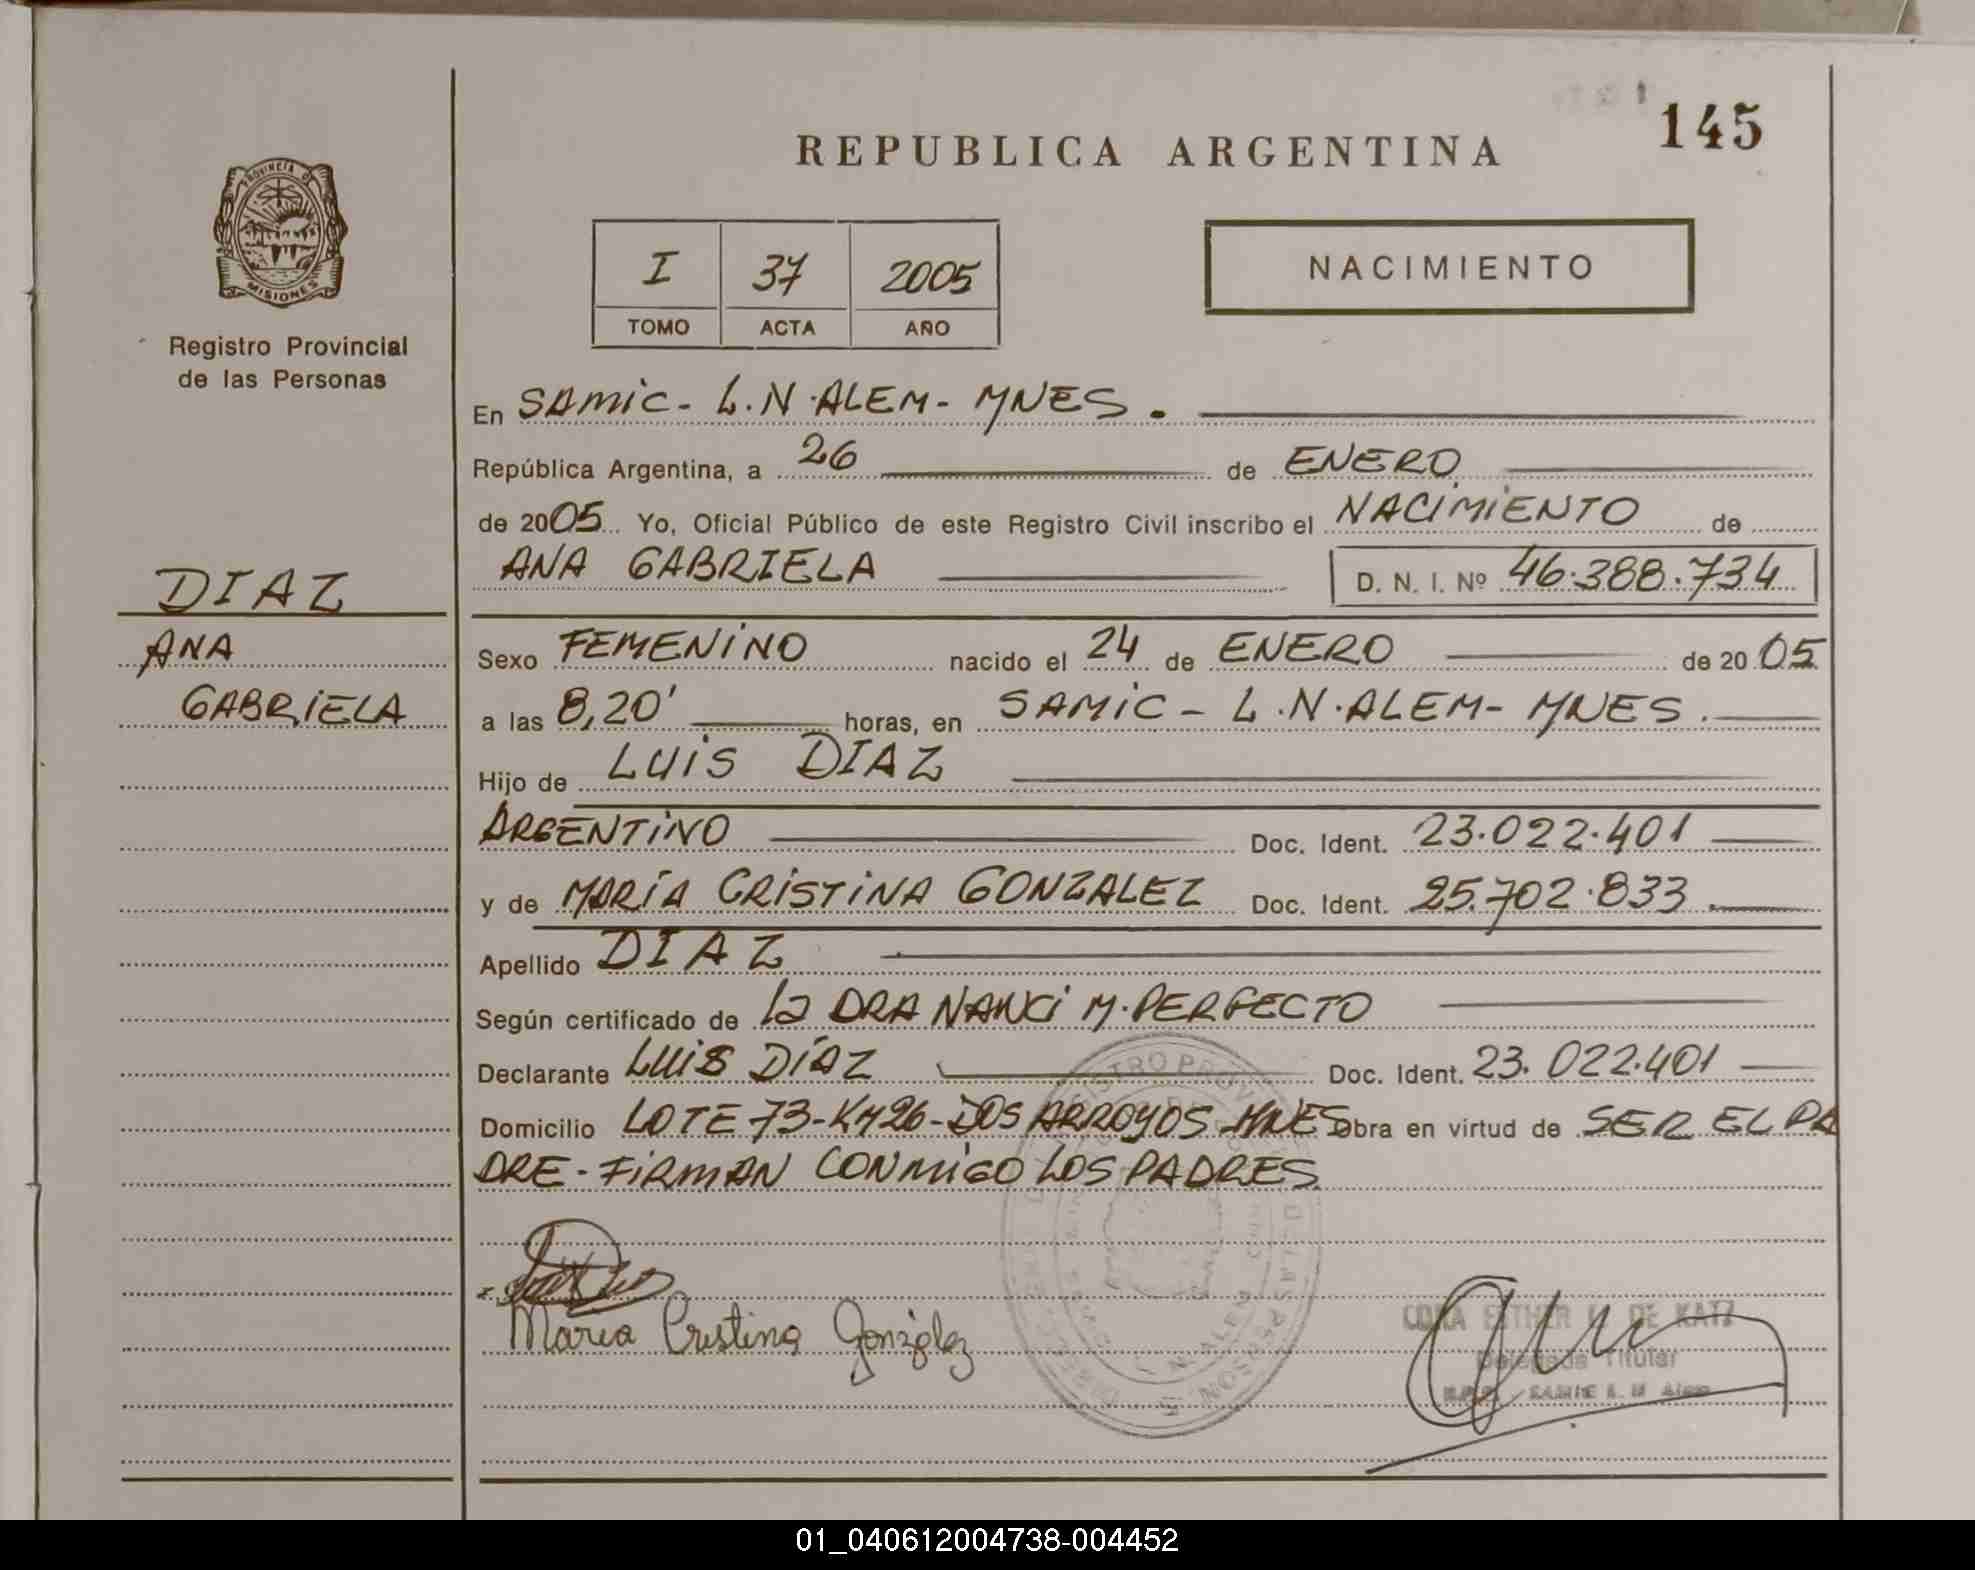 145
REPUBLICA ARGENTINA
PROVINCIA DE
MISIONES
Registro Provincial
de las Personas
I 37 2005
TOMO ACTA AÑO
NACIMIENTO
En SAMIC - L.N. ALEM - MNES.
República Argentina, a 26 de ENERO
de 2005 Yo, Oficial Público de este Registro Civil inscribo el NACIMIENTO de
ANA GABRIELA D. N. I. Nº 46.388.734
DIAZ
ANA
GABRIELA
Sexo FEMENINO nacido el 24 de ENERO de 2005
a las 8,20' horas, en SAMIC - L.N. ALEM - MNES.
Hijo de LUIS DIAZ
ARGENTINO Doc. Ident. 23.022.401
y de MARÍA CRISTINA GONZALEZ Doc. Ident. 25.702.833
Apellido DIAZ
Según certificado de la DRA NANCI M. PERFECTO
Declarante LUIS DÍAZ Doc. Ident. 23.022.401
Domicilio LOTE 73-KM26-DOS ARROYOS MNES Obra en virtud de SER EL PA
DRE - FIRMAN CONMIGO LOS PADRES
Maria Cristina González
ESTHER DE KATZ
Delegada Titular
SAMIC L. N. Alem
01_040612004738-004452